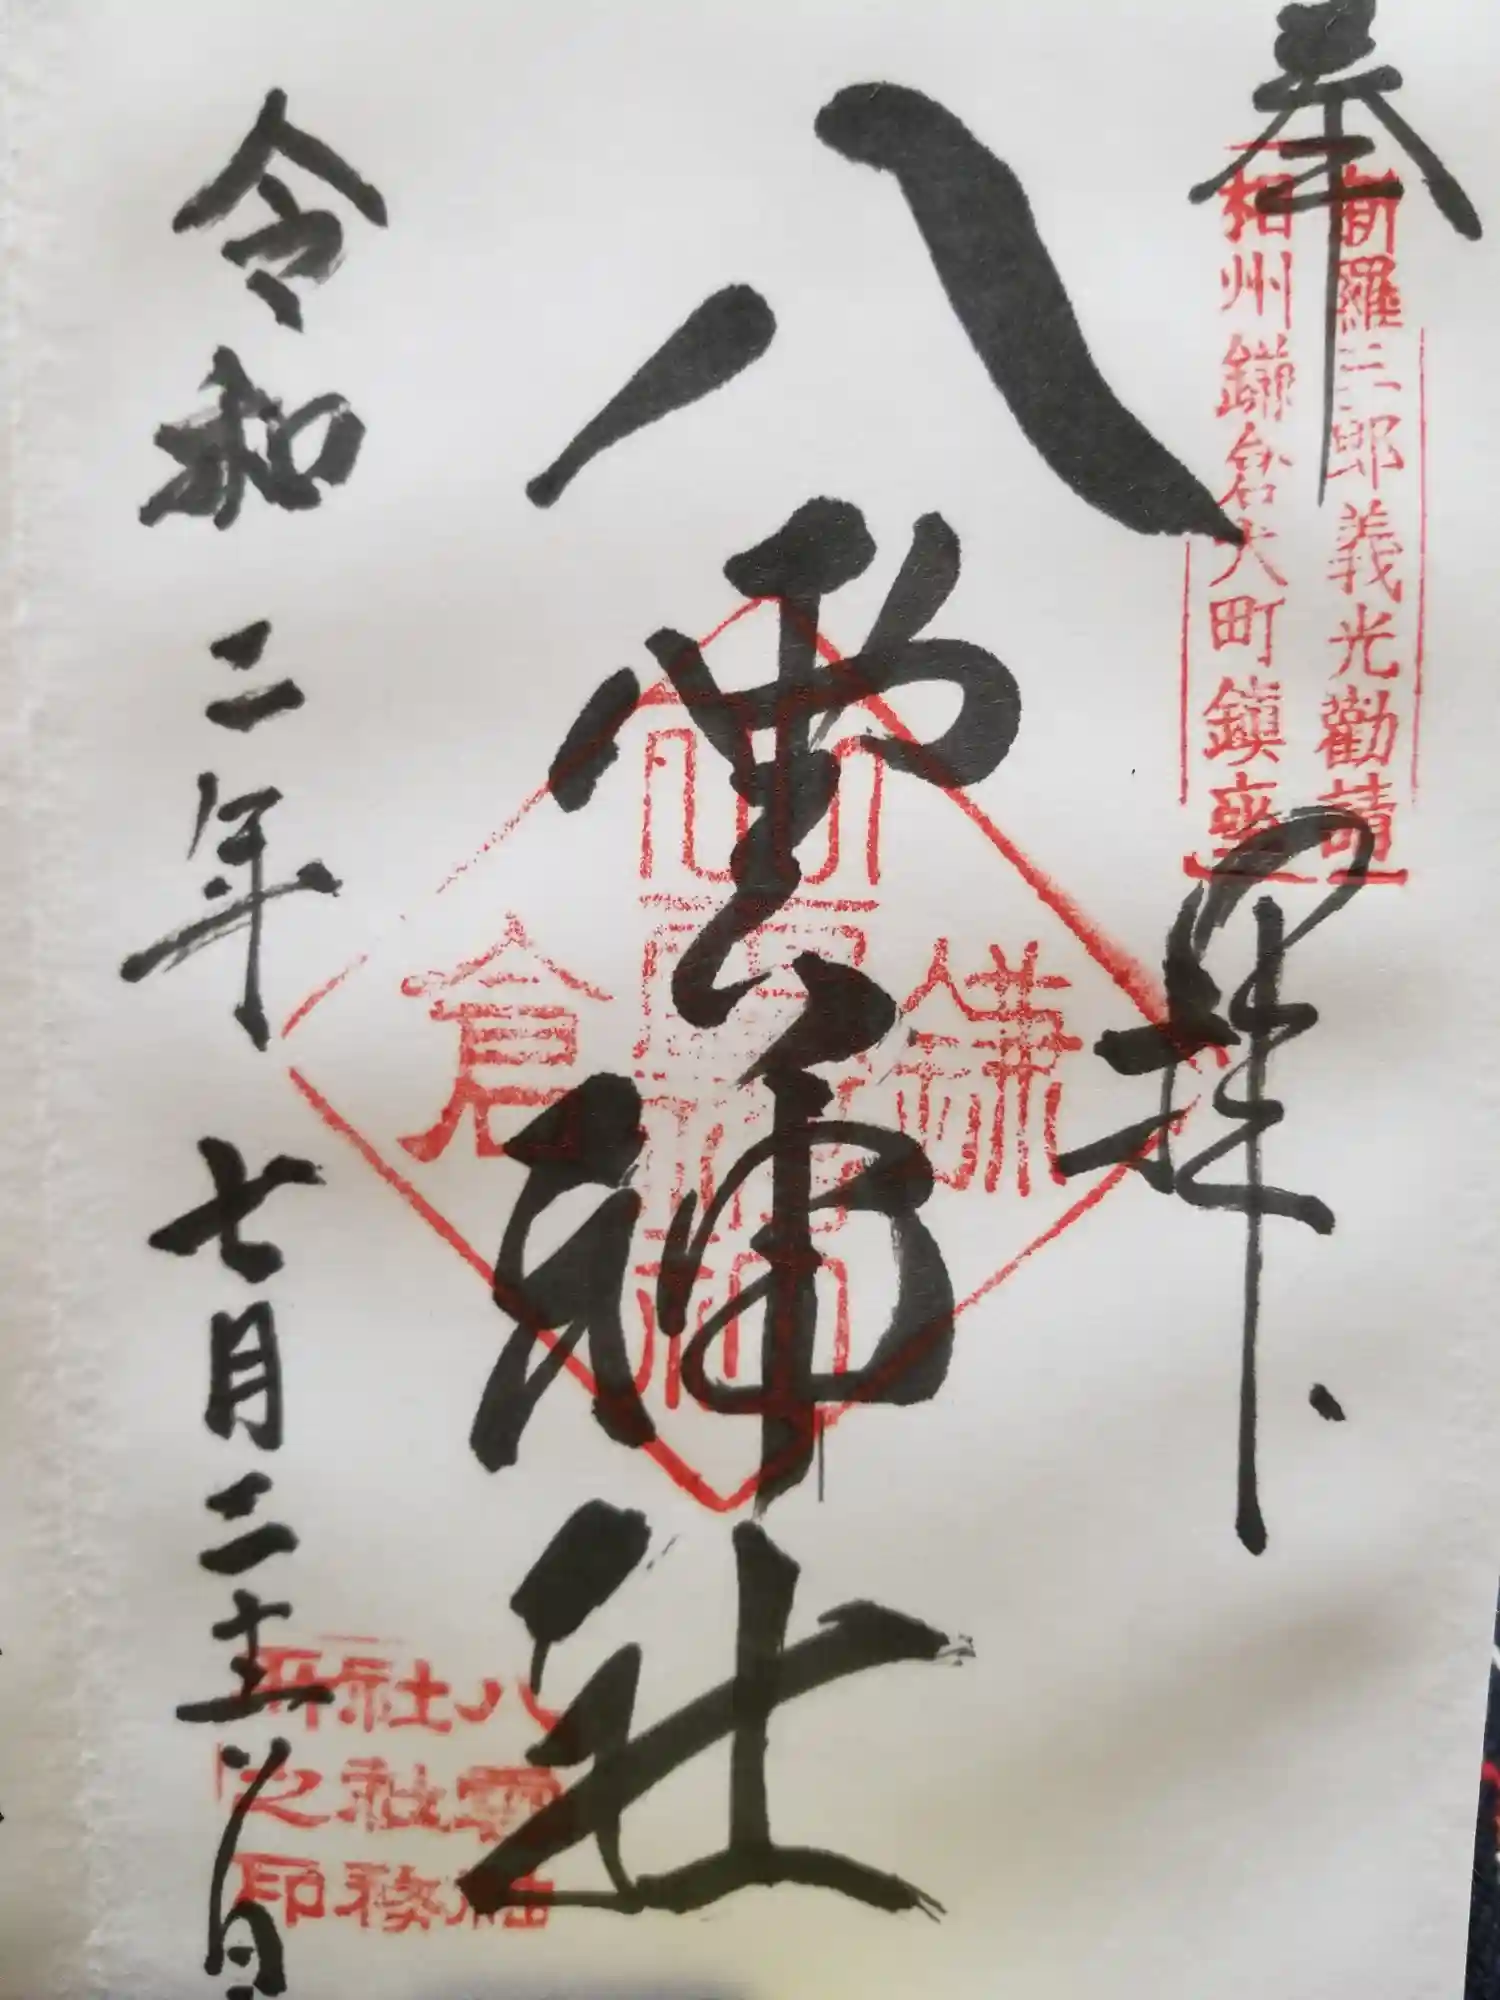 奉拝
新羅三郎義光勸請
相州鎌倉大町鎮座
八雲神社
鎌倉
令和二年七月二十五日
八雲神
社社務
所之印